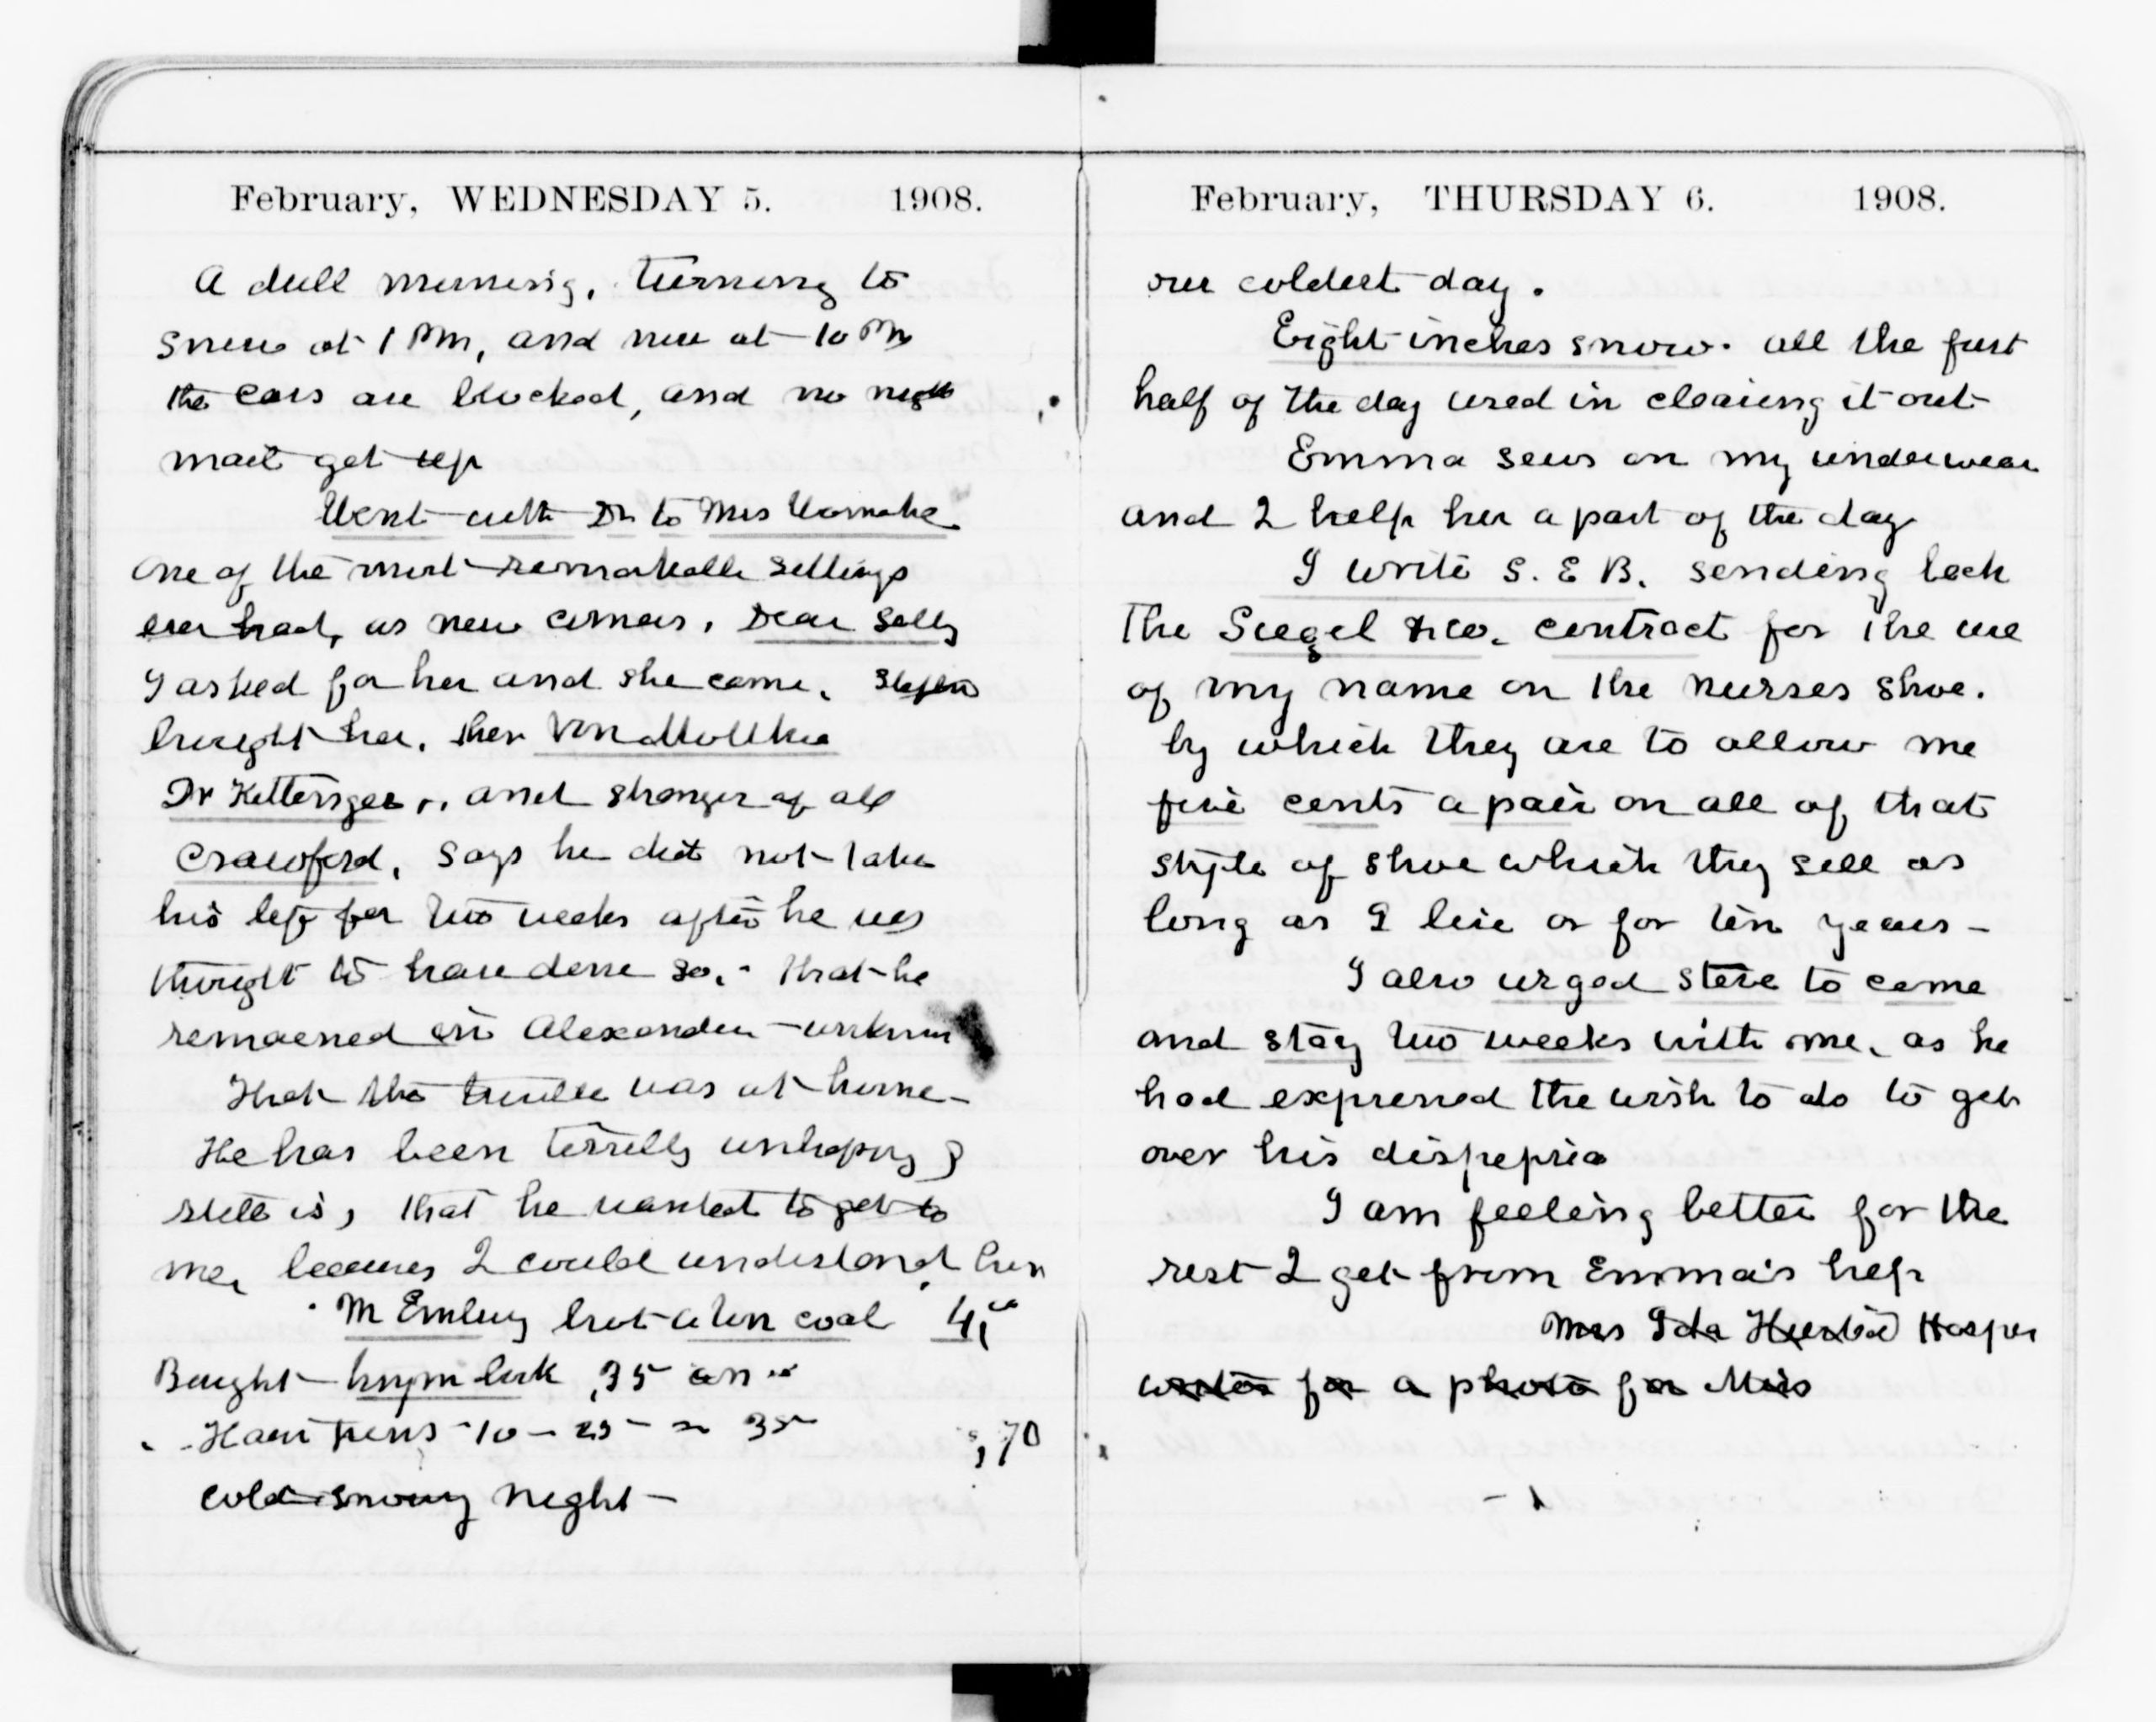 February, WEDNESDAY 5. 1908.
A dull morning, turning to
snow at 1 PM, and now at 10 PM
the cars are blocked, and no night
mail get up
Went with Dr to Mrs
one of the most remarkable settings
ever had, as new comers. Dear Sally
I asked for her and she came.
brought her. then Von Moltke
Dr Kettersger, and stranger of all
Crawford, says he did not take
his life for two weeks after he was
thought to have done so. - that he
remained in Alexander - unknown
That the trouble was at home -
He has been terribly unhappy &
still is, that he wanted to get to
me, because I could understand him
M Embury brot a ton coal 4,00
Bought hymn book ,35
Hair pins - 10 - 25 - 35 ,70
cold snowy night -
February, THURSDAY 6. 1908.
our coldest day.
Eight inches snow. all the first
half of the day used in clearing it out
Emma sews on my underwear
and I help her a part of the day
I write S. E B. sending back
The Siegel & co. contract for the use
of my name on the nurses shoe.
by which they are to allow me
five cents a pair on all of that
style of shoe which they sell as
long as I live or for ten years -
I also urged Steve to come
and stay two weeks with me, as he
had expressed the wish to do to get
over his dispepsia
I am feeling better for the
rest I get from Emma's help
Mrs Ida Husted Harper
writes for a photo for Miss